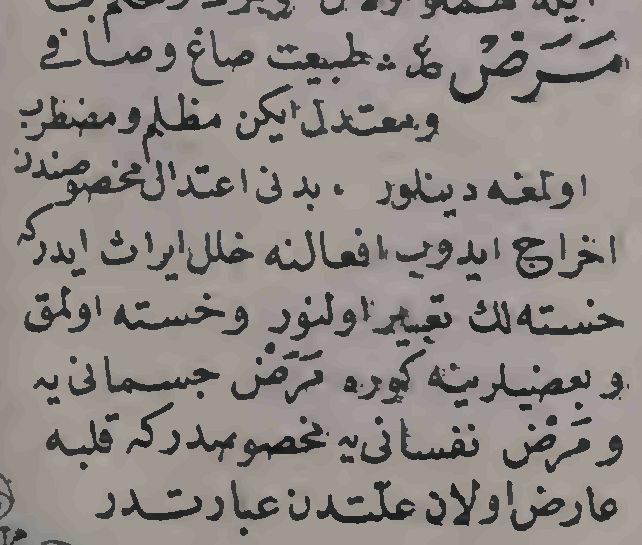 مَرَضْ طبيعت صاغ وصافى
ومعتدل ايكن مظلم ومضطرب
اولمغه دينلور ، بدنى اعتدال مخصوصندن
اخراج ايدوب افعالنه خلل ايراث ايدر كه
خسته لك تعبير اولنور وخسته اولمق
وبعضيلرينه كوره مَرَضْ جسمانى يه
ومَرْض نفسانى يه مخصوصدر كه قلبه
عارض اولان علّتدن عبارتدر